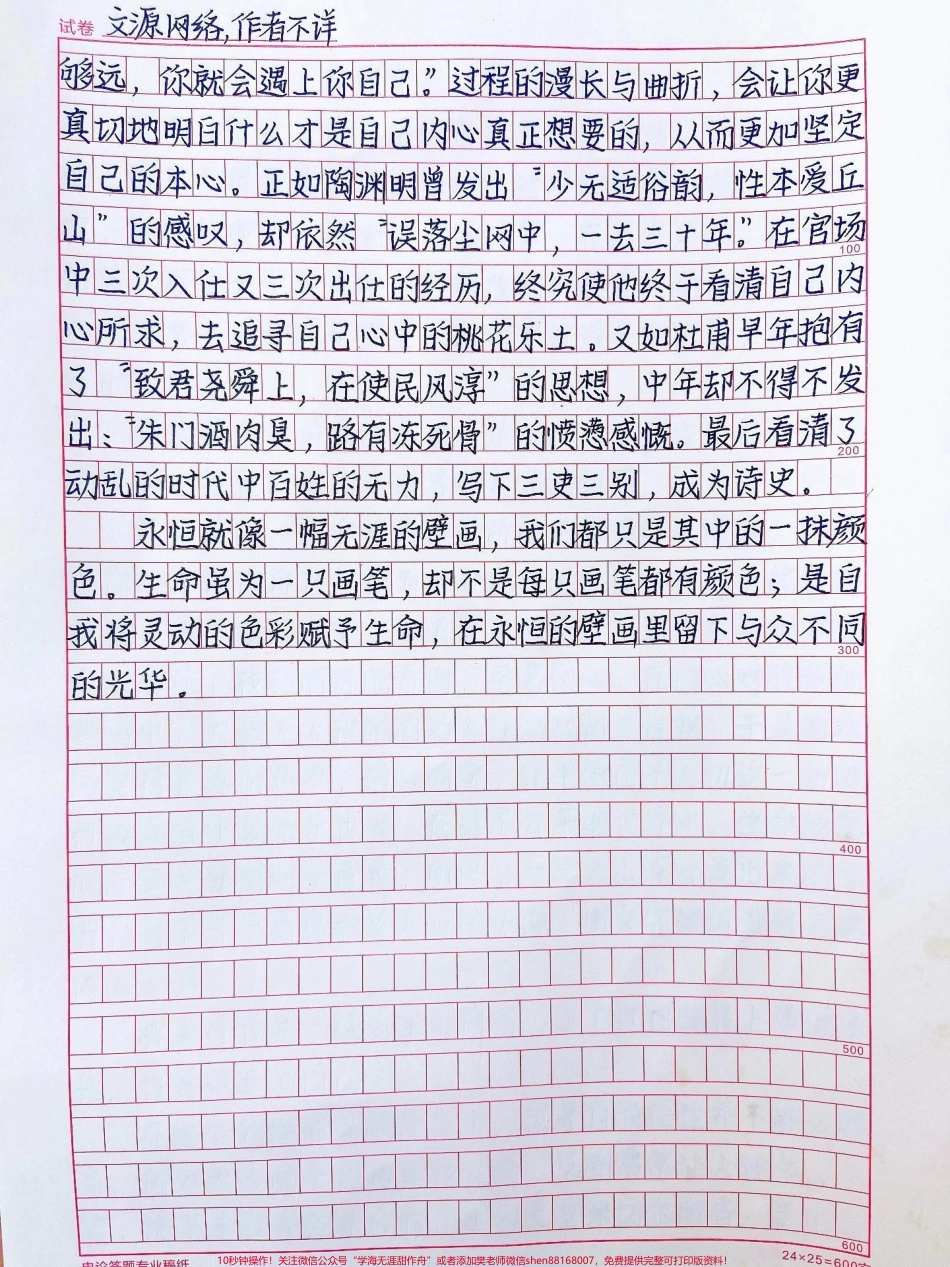 试卷 文源网络,作者不详
够远，你就会遇上你自己”。过程的漫长与曲折，会让你更
真切地明白什么才是自己内心真正想要的，从而更加坚定
自己的本心。正如陶渊明曾发出“少无适俗韵，性本爱丘
山”的感叹，却依然“误落尘网中，一去三十年”。在官场
100
中三次入仕又三次出仕的经历，终究使他终于看清自己内
心所求，去追寻自己心中的桃花乐土。又如杜甫早年抱有
了“致君尧舜上，在使民风淳”的思想，中年却不得不发
出：“朱门酒肉臭，路有冻死骨”的愤懑感慨。最后看清了
200
动乱的时代中百姓的无力，写下三吏三别，成为诗史。
永恒就像一幅无涯的壁画，我们都只是其中的一抹颜
色。生命虽为一只画笔，却不是每只画笔都有颜色；是自
我将灵动的色彩赋予生命，在永恒的壁画里留下与众不同
300
的光华。
400
500
600
申论答题专业稿纸 10秒钟操作！关注微信公众号“学海无涯甜作舟”或者添加樊老师微信shen88168007，免费提供完整可打印版资料！ 24×25=600字